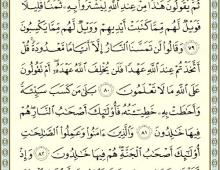 ثُمَّ يَقُولُونَ هَٰذَا مِنْ عِندِ اللَّهِ لِيَشْتَرُوا بِهِ ثَمَنًا قَلِيلًا
فَوَيْلٌ لَّهُم مِّمَّا كَتَبَتْ أَيْدِيهِمْ وَوَيْلٌ لَّهُم مِّمَّا يَكْسِبُونَ
٧٩ وَقَالُوا لَن تَمَسَّنَا النَّارُ إِلَّا أَيَّامًا مَّعْدُودَةً قُلْ
أَتَّخَذْتُمْ عِندَ اللَّهِ عَهْدًا فَلَن يُخْلِفَ اللَّهُ عَهْدَهُ أَمْ تَقُولُونَ
عَلَى اللَّهِ مَا لَا تَعْلَمُونَ ٨٠ بَلَىٰ مَن كَسَبَ سَيِّئَةً
وَأَحَاطَتْ بِهِ خَطِيئَتُهُ فَأُولَٰئِكَ أَصْحَابُ النَّارِ هُمْ
فِيهَا خَالِدُونَ ٨١ وَالَّذِينَ آمَنُوا وَعَمِلُوا الصَّالِحَاتِ
أُولَٰئِكَ أَصْحَابُ الْجَنَّةِ هُمْ فِيهَا خَالِدُونَ ٨٢